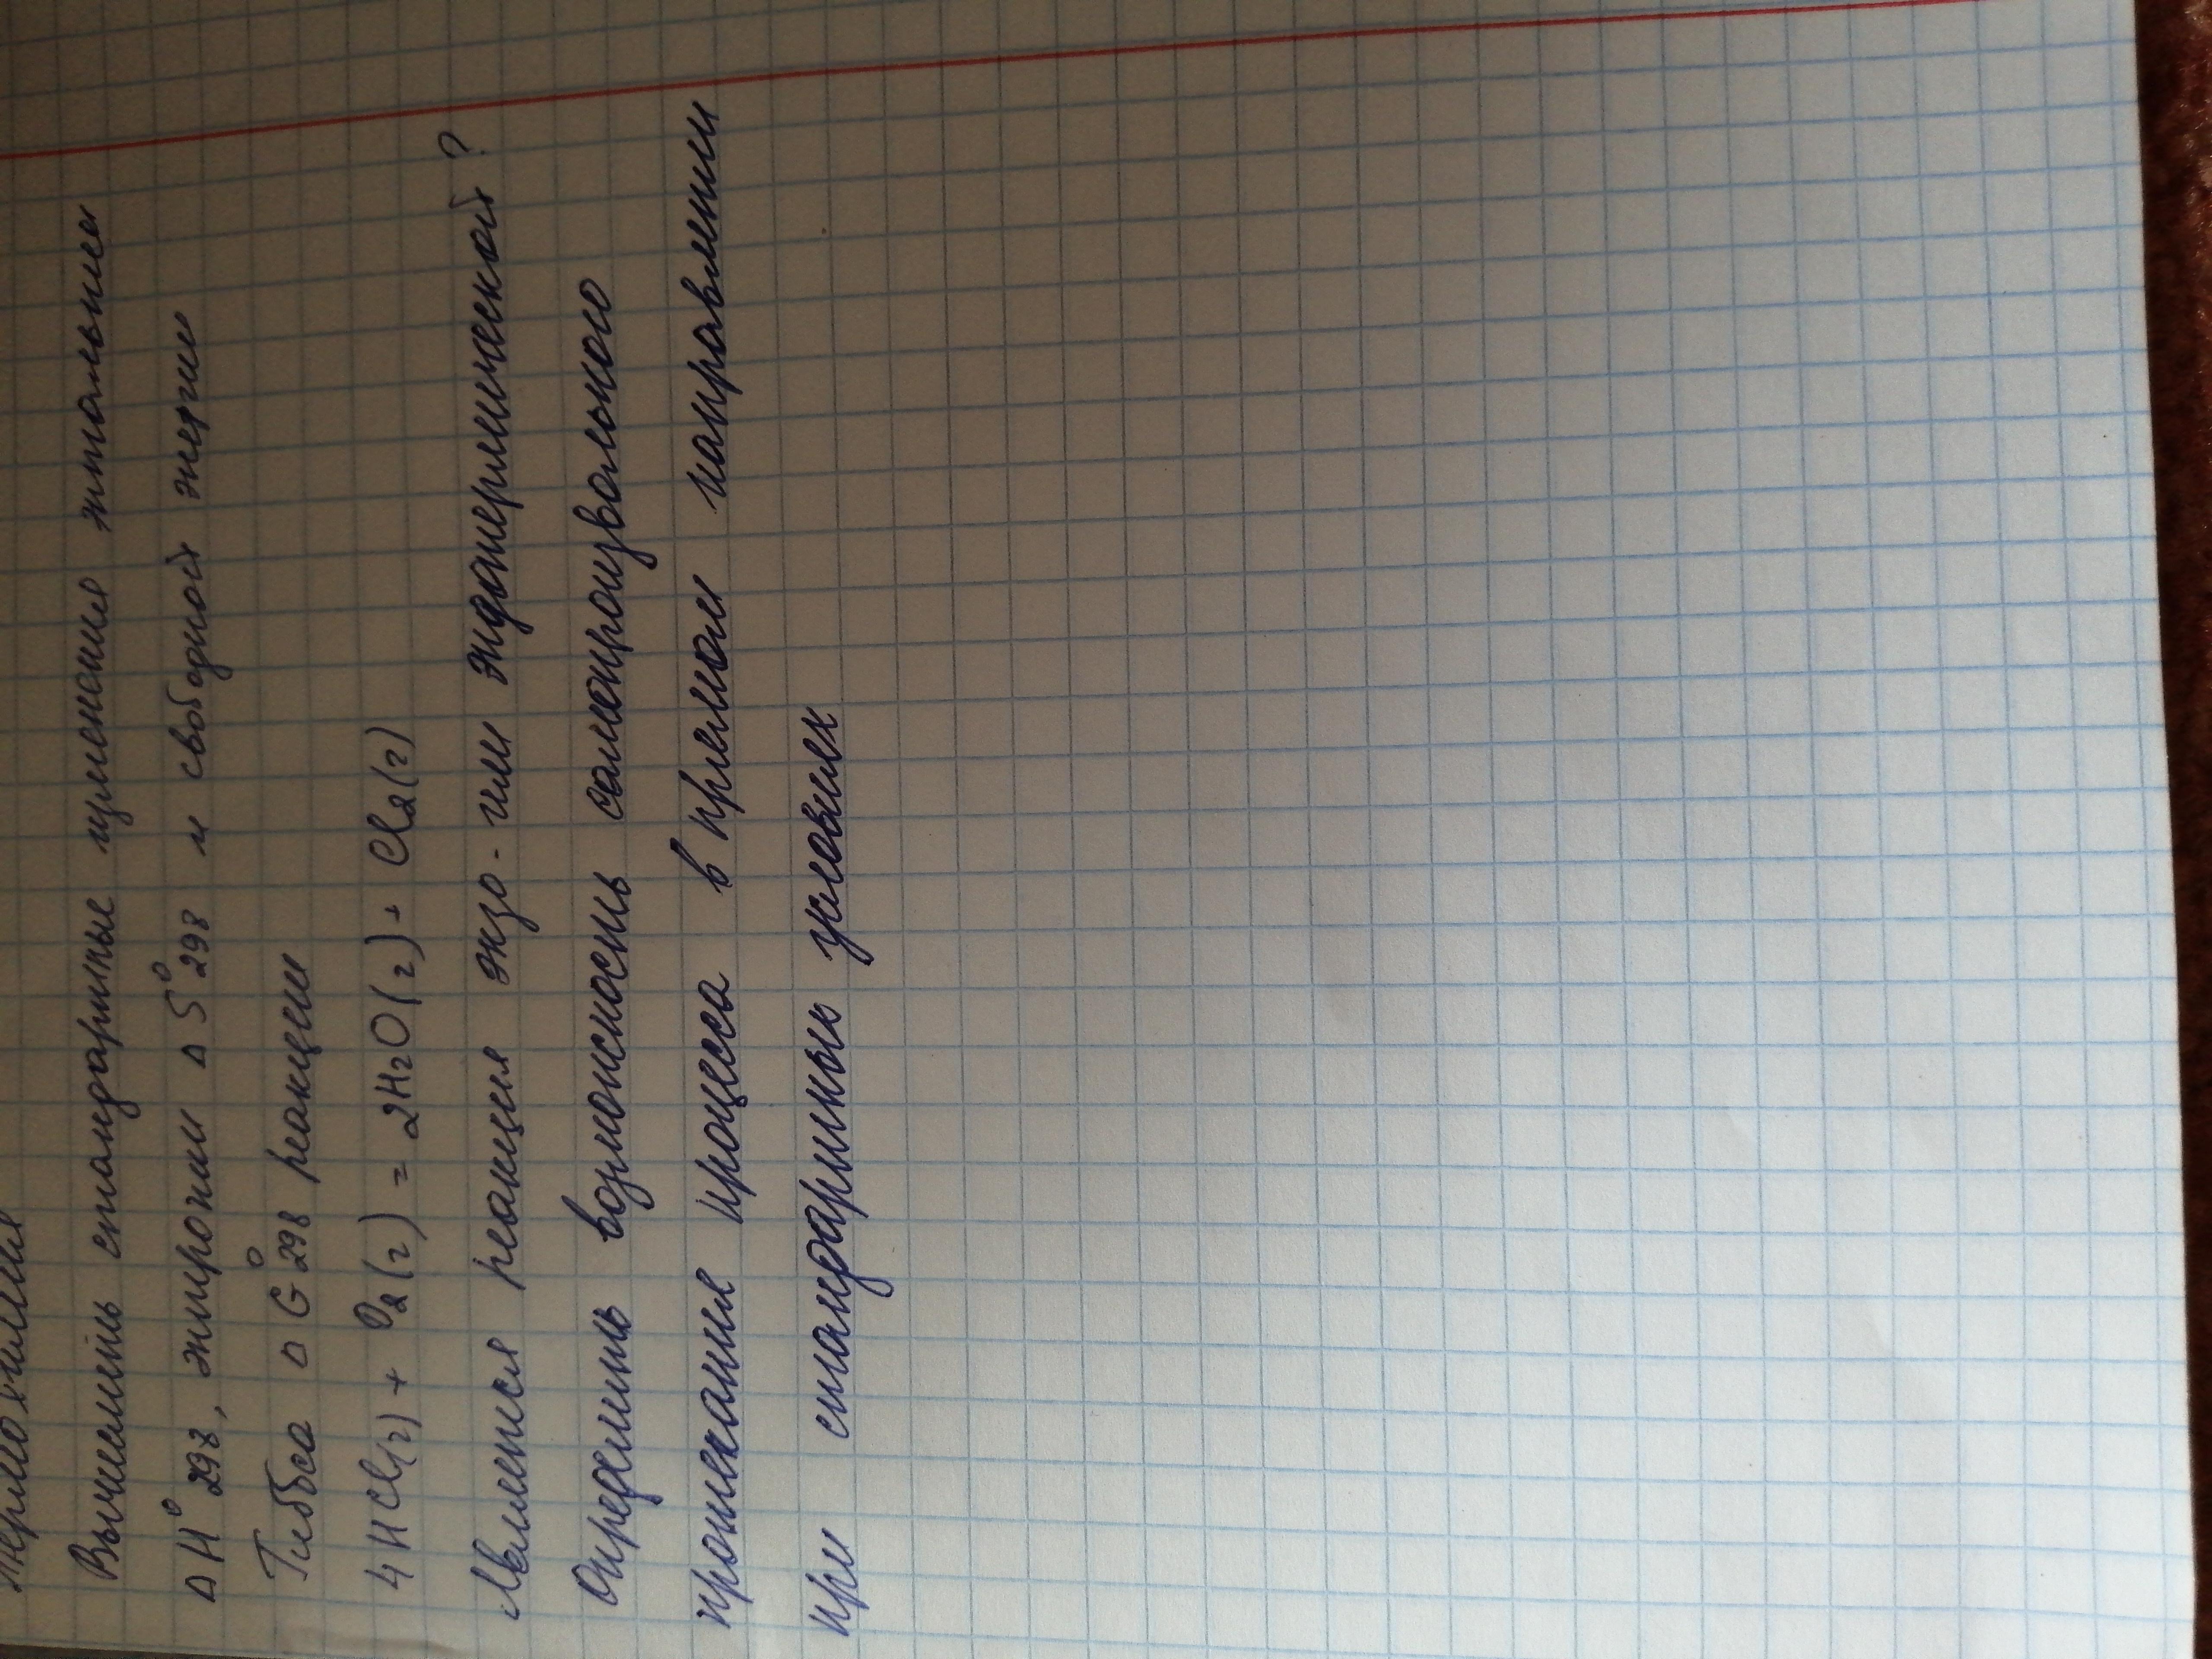 Термохимия
Вычислить стандартные изменения энтальпиеи
ΔH°298, энтропии ΔS°298 и свободной энергии
Гиббса ΔG°298 реакции
4HCl(г) + O2(г) = 2H2O(г) + Cl2(г)
Является реакция экзо- или эндотермической?
Определить возможность самопроизвольного
протекания процесса в прямом направлении
при стандартных условиях